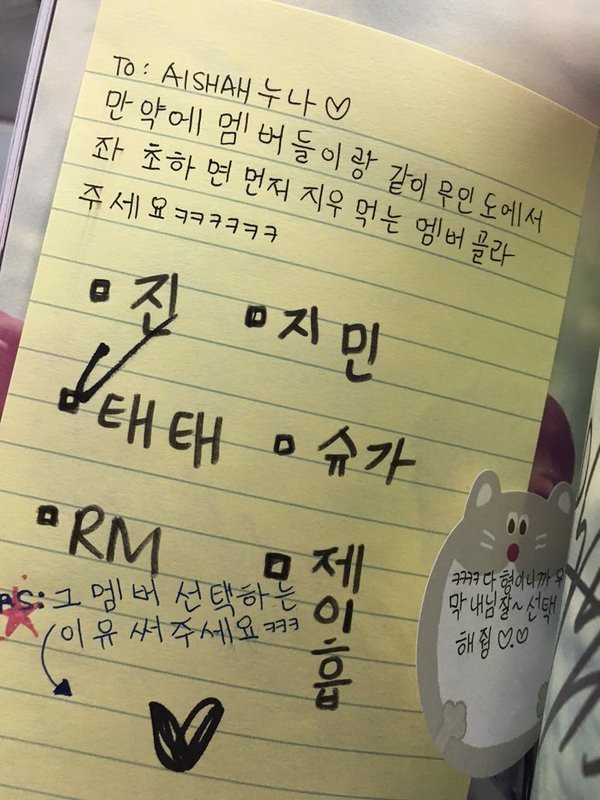 To: AISHAH 누나♡
만약에 멤버들이랑 같이 무인도에서
좌초하면 먼저 지우 먹는 멤버 골라
주세요ㅋㅋㅋㅋㅋㅋ
진
지민
태태
슈가
RM
제이홉
PS: 그 멤버 선택하는
이유 써주세요ㅋㅋㅋ
ㅋㅋㅋㅋ다 형아니까 우
막내님 잘~ 선택
해줘 ♡.♡